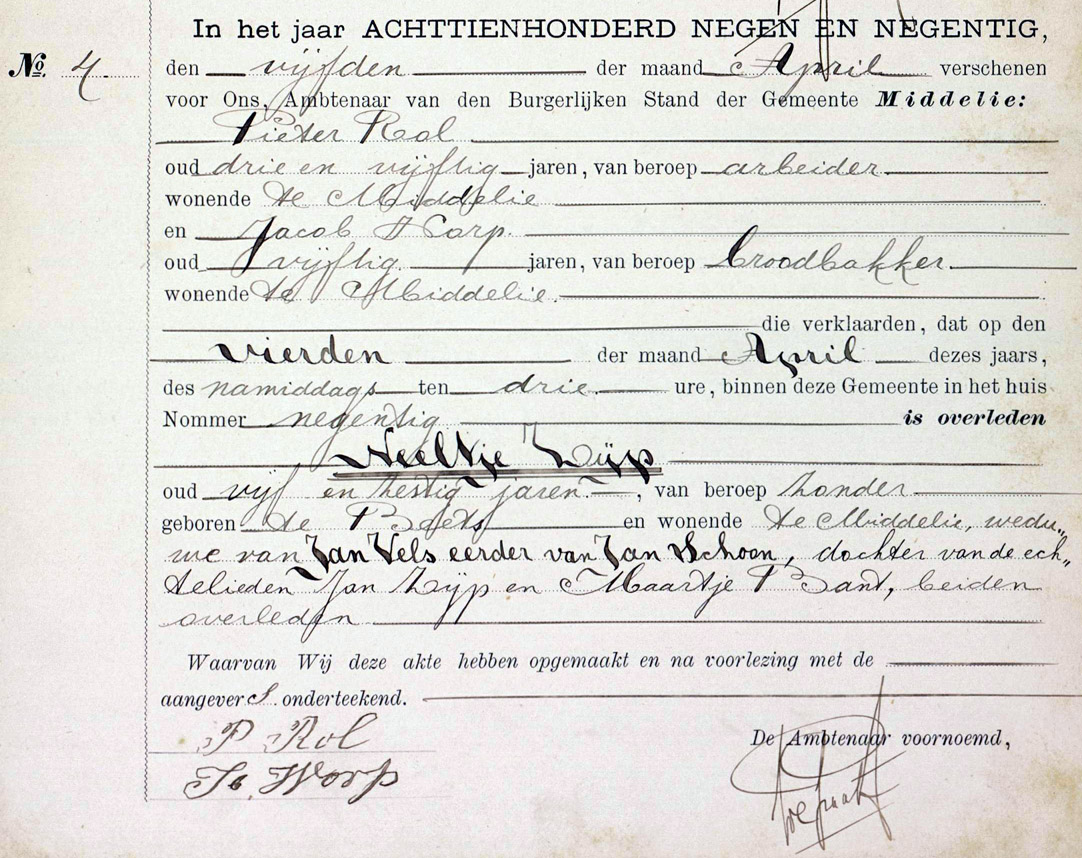 In het jaar ACHTTIENHONDERD NEGEN EN NEGENTIG,
No. 4 den vijfden der maand April verschenen
voor Ons, Ambtenaar van den Burgerlijken Stand der Gemeente Middelie:
Pieter Rol
oud drie en vijftig jaren, van beroep arbeider
wonende te Middelie
en Jacob Worp
oud vijftig jaren, van beroep broodbakker
wonende te Middelie.
die verklaarden, dat op den
vierden der maand April dezes jaars,
des namiddags ten drie ure, binnen deze Gemeente in het huis
Nommer negentig is overleden
Neeltje Zijp
oud vijf en zestig jaren, van beroep zonder
geboren te Beets en wonende te Middelie, wedu„
we van Jan Vels eerder van Jan Schoon, dochter van de ech„
telieden Jan Zijp en Maartje Bant, beiden
overleden
Waarvan Wij deze akte hebben opgemaakt en na voorlezing met de
aangevers onderteekend.
P Rol
De Ambtenaar voornoemd,
Jb. Worp